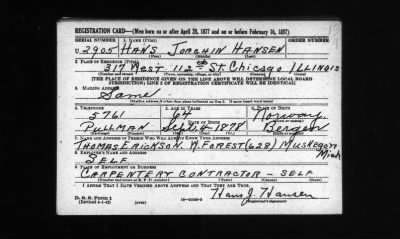 REGISTRATION CARD—(Men born on or after April 28, 1877 and on or before February 16, 1897)
SERIAL NUMBER 1. NAME (Print) ORDER NUMBER
U 2905 HANS JOACHIN HANSEN
(First) (Middle) (Last)
2. PLACE OF RESIDENCE (Print)
317 West 112th St. Chicago ILLINOIS
(Number and street) (Town, township, village, or city) (County) (State)
[THE PLACE OF RESIDENCE GIVEN ON THE LINE ABOVE WILL DETERMINE LOCAL BOARD
JURISDICTION; LINE 2 OF REGISTRATION CERTIFICATE WILL BE IDENTICAL]
3. MAILING ADDRESS
Same
[Mailing address if other than place indicated on line 2. If same insert word same]
4. TELEPHONE 5. AGE IN YEARS 6. PLACE OF BIRTH
5761 64 Norway
DATE OF BIRTH
PULLMAN Sept. 1878 Bergen
(Exchange) (Number) (Mo.) (Day) (Yr.) (State or country)
7. NAME AND ADDRESS OF PERSON WHO WILL ALWAYS KNOW YOUR ADDRESS
THOMAS ERICKSON. W. FOREST (628) MUSKEGON Mich
8. EMPLOYER'S NAME AND ADDRESS
SELF
9. PLACE OF EMPLOYMENT OR BUSINESS
CARPENTRY CONTRACTOR - SELF
(Number and street or R. F. D. number) (Town) (County) (State)
I AFFIRM THAT I HAVE VERIFIED ABOVE ANSWERS AND THAT THEY ARE TRUE.
D. S. S. Form 1
(Revised 4-1-42) (over) Hans J. Hansen
(Registrant's signature)